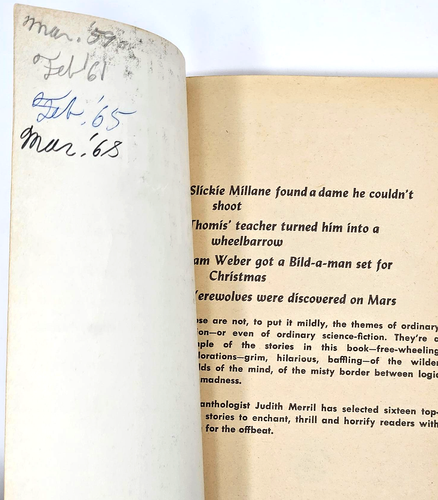 Mar. '59
Feb '61
Feb. '65
Mar. '68
Slickie Millane found a dame he couldn't
shoot
Thomis' teacher turned him into a
wheelbarrow
am Weber got a Bild-a-man set for
Christmas
Werewolves were discovered on Mars
ose are not, to put it mildly, the themes of ordinary
on—or even of ordinary science-fiction. They're a
ple of the stories in this book—free-wheeling
lorations—grim, hilarious, baffling—of the wilder
lds of the mind, of the misty border between logic
madness.
anthologist Judith Merril has selected sixteen top-
stories to enchant, thrill and horrify readers with
for the offbeat.